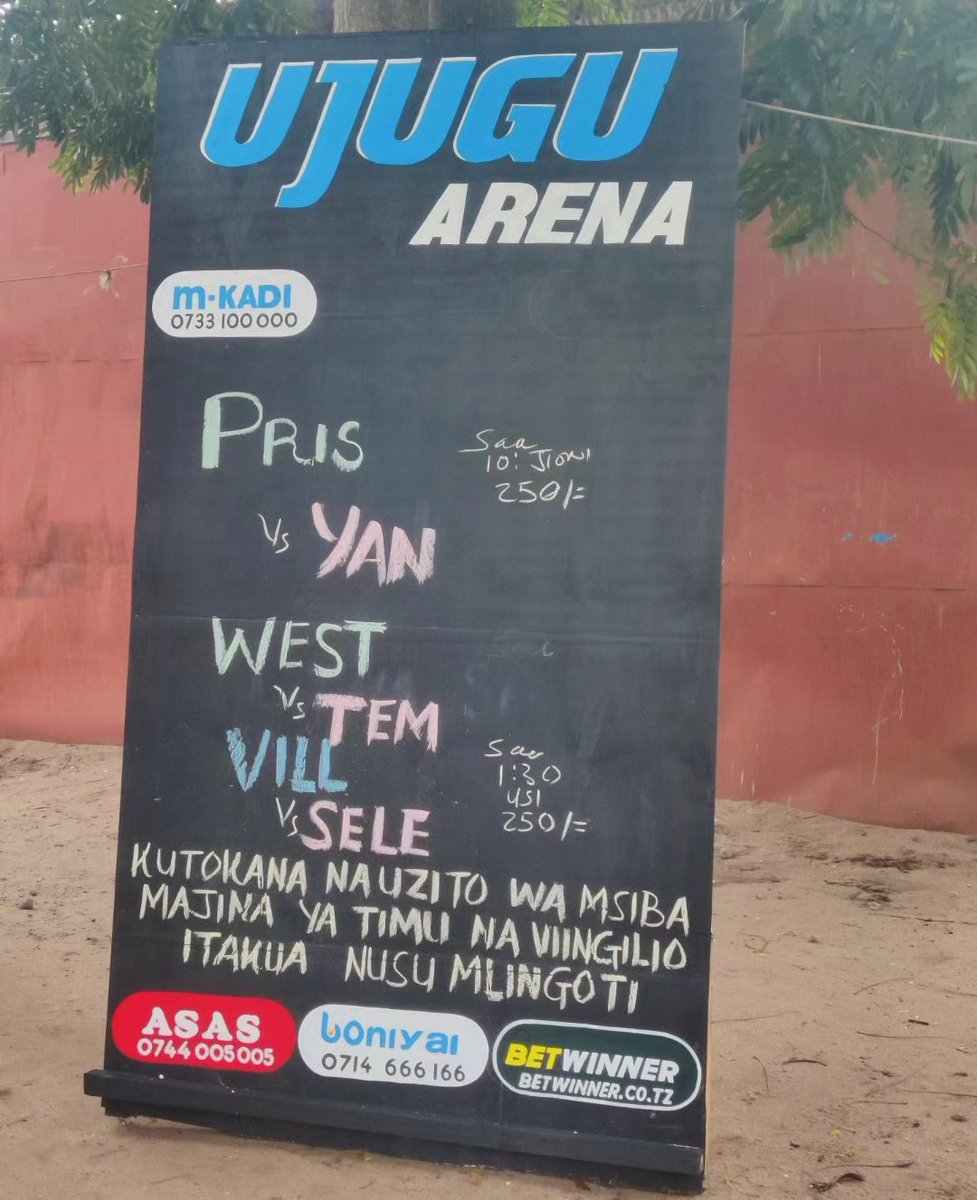 UJUGU
ARENA
m-KADI
0733 100 000
PRIS
Saa
10: JIONI
250/=
Vs YAN
WEST
Vs TEM
VILL
Saa
1:30
USI
250/=
Vs SELE
KUTOKANA NA UZITO WA MSIBA
MAJINA YA TIMU NA VIINGILIO
ITAKUA NUSU MLINGOTI
ASAS
0744 005 005
boniyai
0714 666 166
BETWINNER
BETWINNER.CO.TZ